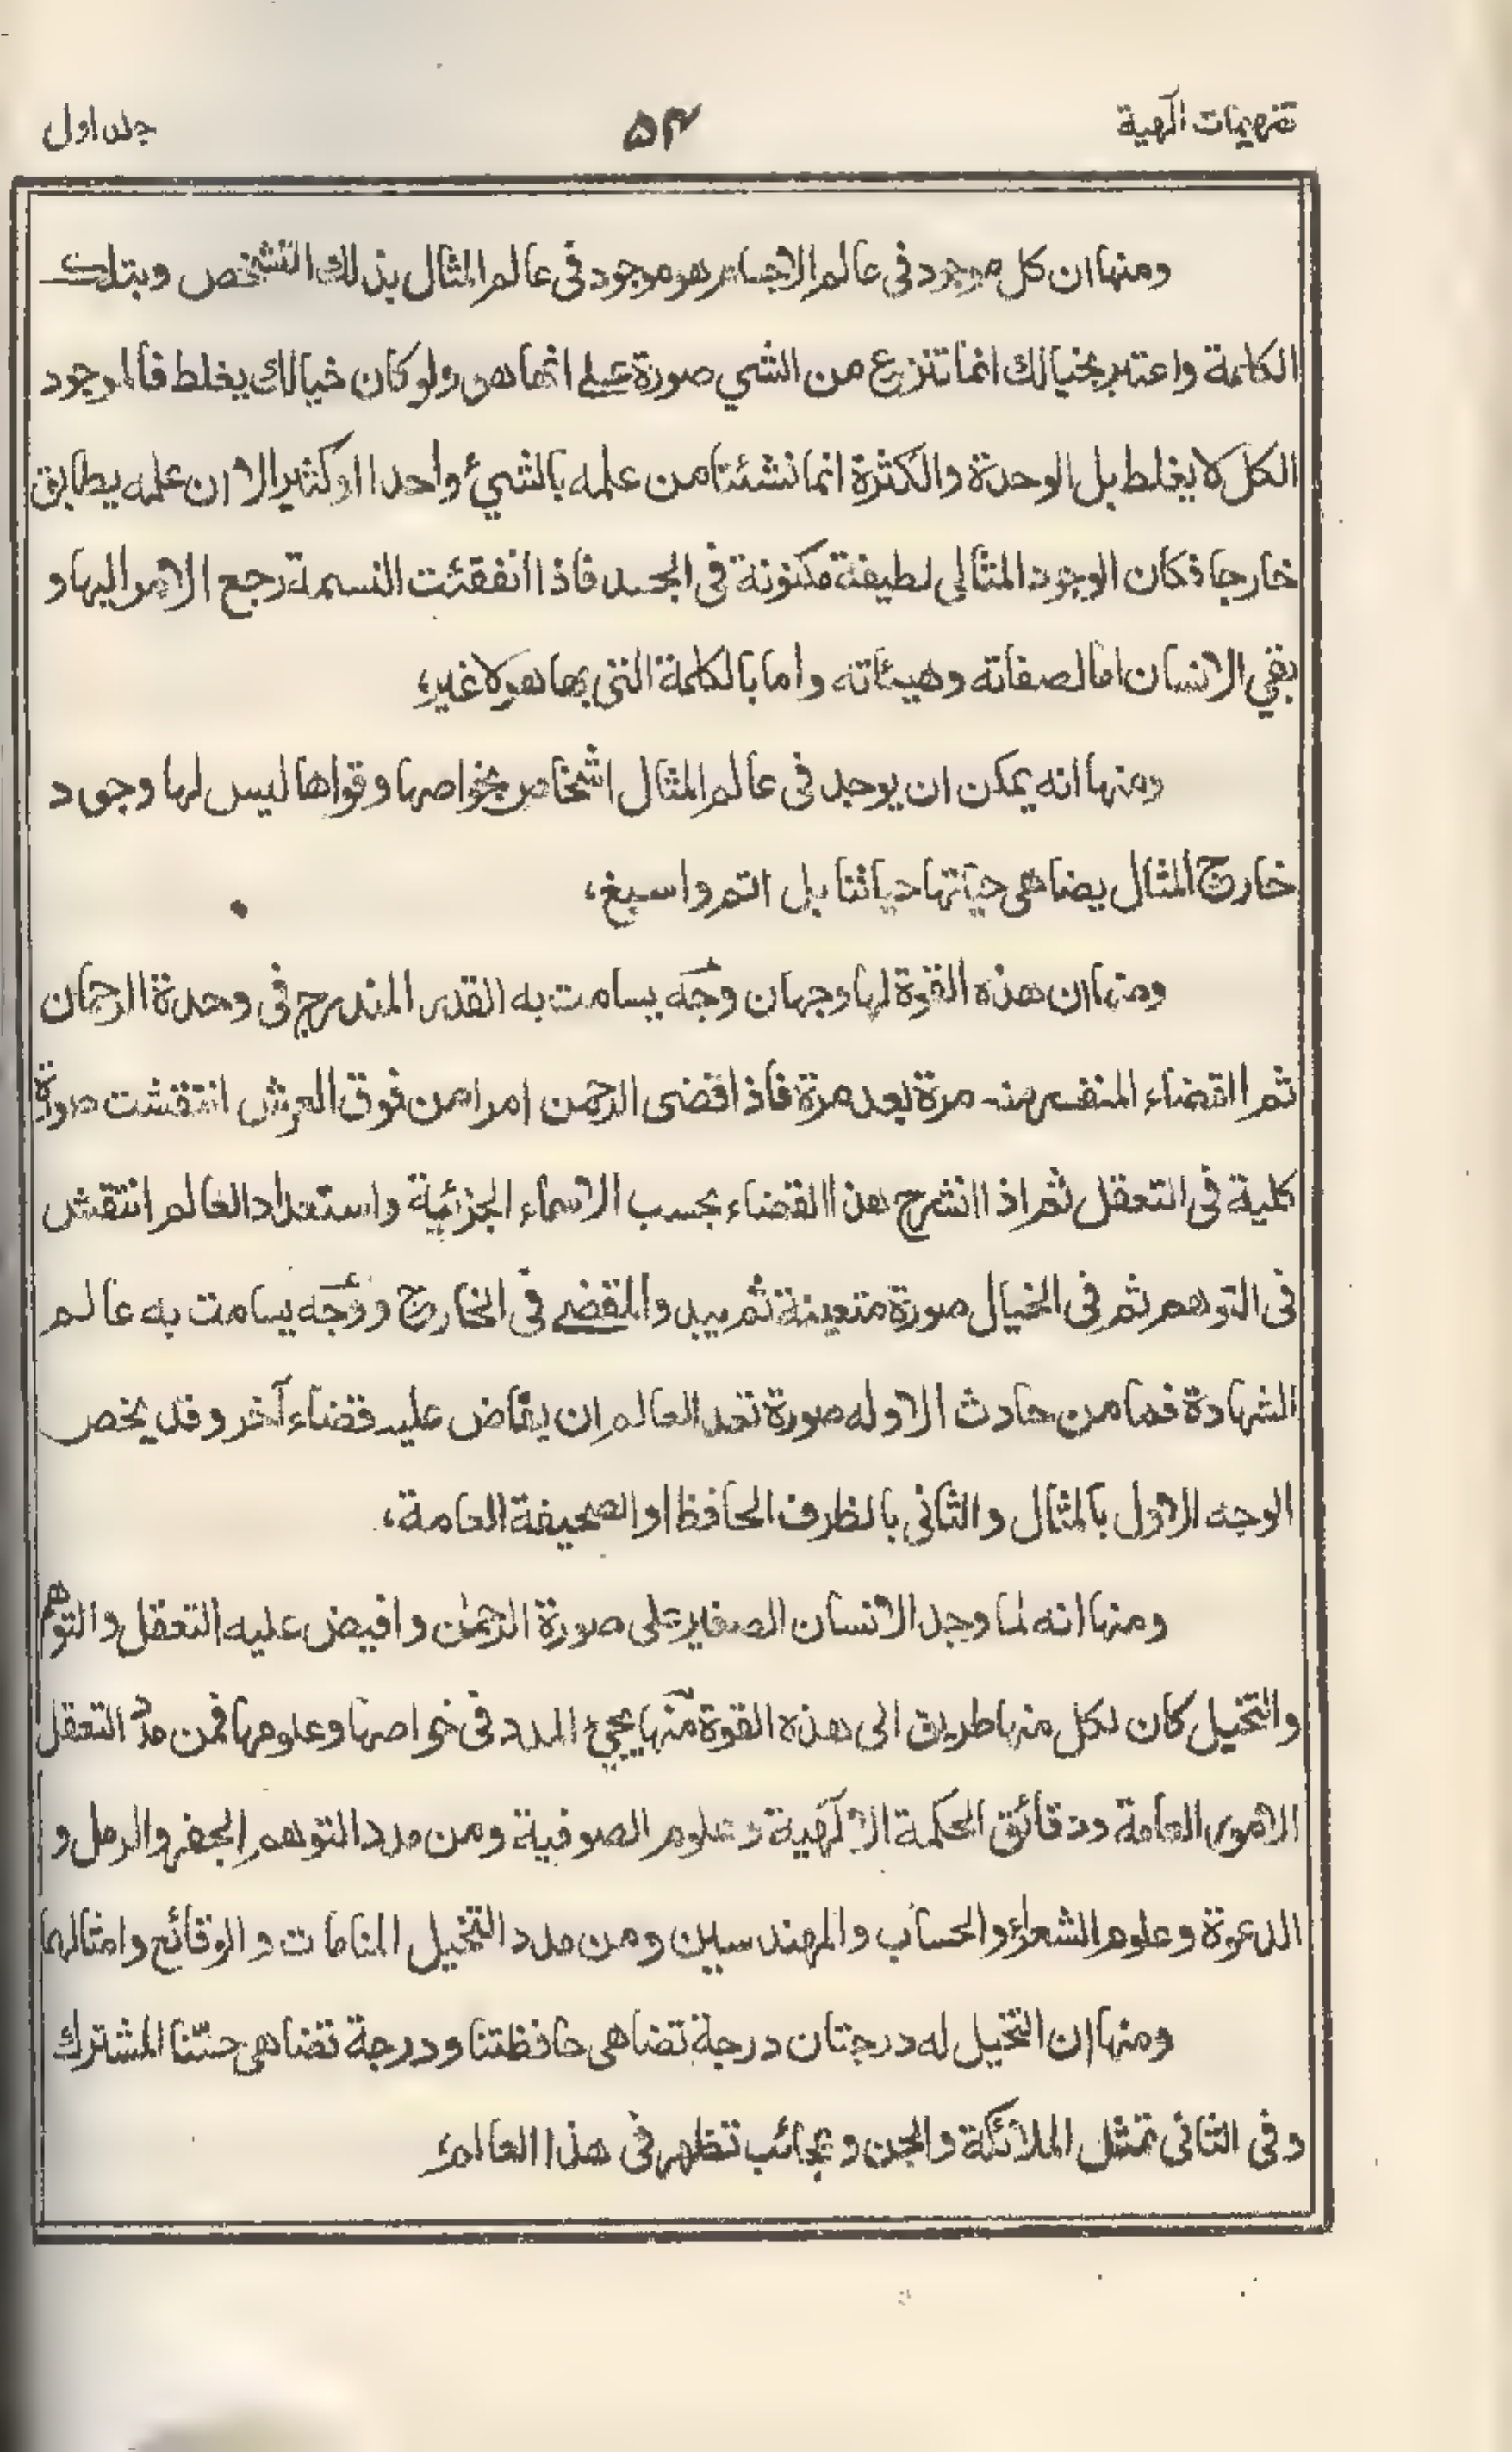 تفهيمات الٓهية ۵۴ جلد اول
ومنها ان كل موجود فى عالم الاجسام هو موجود فى عالم المثال بذلك التشخص وبتلك
الكلمة واعتبر بخيالك انما تنزع من الشي صورة على انها هى ولو كان خيالك يغلط فالموجود
الكل لا يغلط بل الوحدة والكثرة انما نشئتا من علمه بالشيء واحدا او كثيرا لا ان علمه يطابق
خارجا فكان الوجود المثالى لطيفة مكنونة فى الجسد فاذا انفقئت النسمة رجع الامر اليها و
بقي الانسان اما لصفاته وهيئاته واما بالكلمة التى بها هو لا غير،
ومنها انه يمكن ان يوجد فى عالم المثال اشخاص بخواصها وقواها ليس لها وجود
خارج المثال يضاهى حياتها حياتنا بل اتم واسبغ،
ومنها ان هذه القوة لها وجهان وجه يسامت به القدر المندرج فى وحدة الرحمان
ثم القضاء المنفسر منه مرة بعد مرة فاذا قضى الرحمن امرا من فوق العرش انتقشت صورة
كلية فى التعقل ثم اذا انشرح هذا القضاء بحسب الاسماء الجزئية واستعداد العالم انتقش
فى التوهم ثم فى الخيال صورة متعينة ثم يبدو المقضے فى الخارج ووجه يسامت به عالم
الشهادة فما من حادث الا وله صورة تعد العالم ان يفاض عليه قضاء آخر وقد يخص
الوجه الاول بالمثال والثانى بالظرف الحافظ او الصحيفة العامة،
ومنها انه لما وجد الانسان الصغير على صورة الرحمٰن وافيض عليه التعقل والتوهم
والتخيل كان لكل منها طريق الى هذه القوة منها يجيئ المدد فى خواصها وعلومها فمن مدد التعقل
الامور العامة ودقائق الحكمة الالٓهية وعلوم الصوفية ومن مدد التوهم الجفر والرمل و
الدعوة وعلوم الشعراء والحساب والمهندسين ومن مدد التخيل المنامات والوقائع وامثالهما
ومنها ان التخيل له درجتان درجة تضاهى حافظتنا ودرجة تضاهى حسّنا المشترك
وفى الثانى تمثل الملائكة والجن وعجائب تظهر فى هذا العالم،